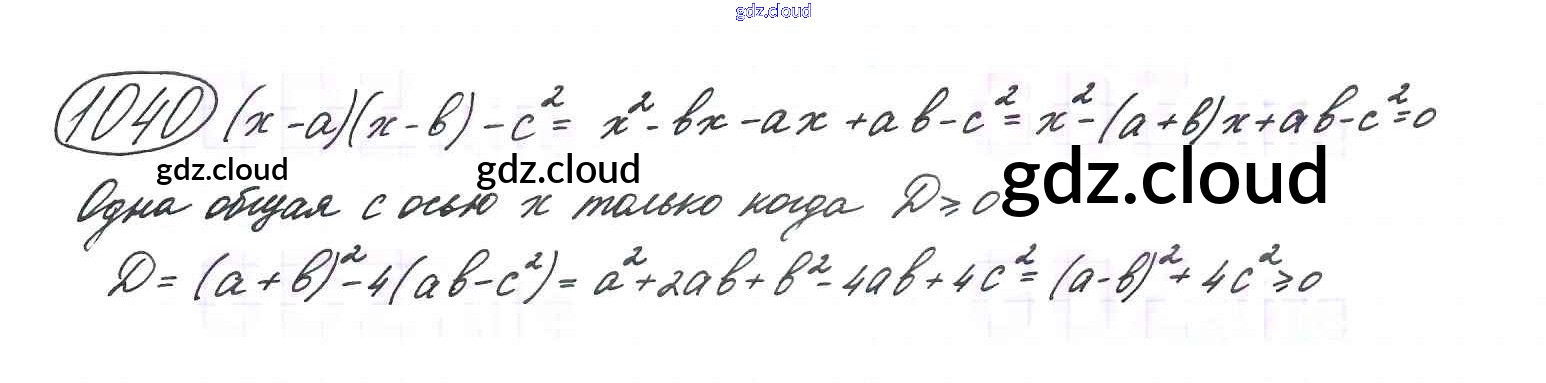 gdz.cloud
1040 (x-a)(x-в)-c²= x²-вx-ax+aв-c²=x²-(a+в)x+aв-c²=0
gdz.cloud gdz.cloud gdz.cloud
Одна общая с осью x только когда D≥0
D=(a+в)²-4(aв-c²)=a²+2aв+в²-4aв+4c²=(a-в)²+4c²≥0